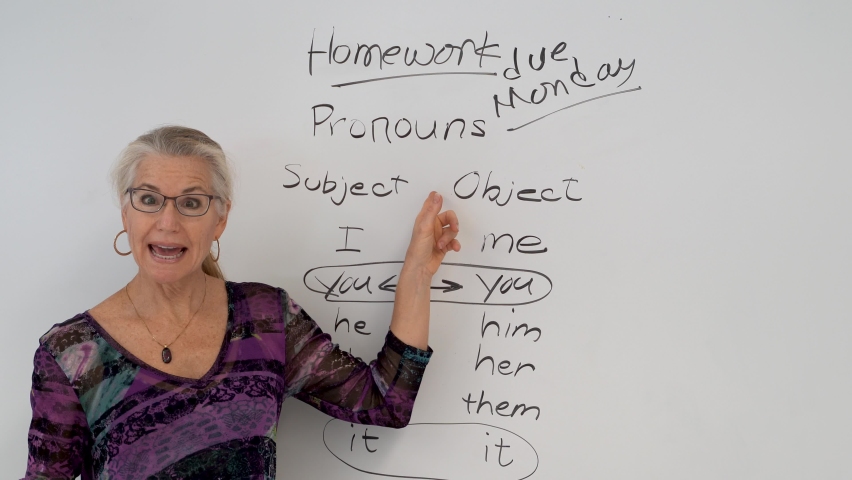 Homework due Monday
Pronouns
Subject Object
I me
you you
he him
her
them
it it